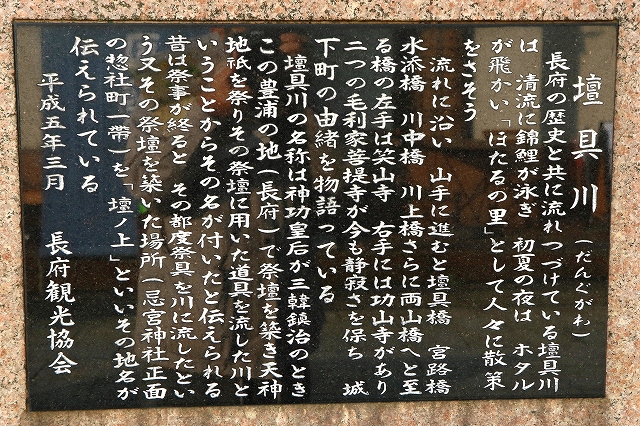 壇具川(だんぐがわ)
長府の歴史と共に流れつづけている壇具川
は 清流に錦鯉が泳ぎ 初夏の夜は ホタル
が飛かい「ほたるの里」として人々に散策
をさそう
流れに沿い 山手に進むと壇具橋 宮路橋
水添橋 川中橋 川上橋さらに両山橋へと至
る橋の左手は笑山寺 右手には功山寺があり
二つの毛利家菩提寺が今も静寂さを保ち 城
下町の由緒を物語っている
壇具川の名称は神功皇后が三韓鎮治のとき
この豊浦の地(長府)で祭壇を築き天神
地祇を祭りその祭壇に用いた道具を流した川と
いうことからその名が付いたと伝えられる
昔は祭事が終ると その都度祭具を川に流したとい
う又その祭壇を築いた場所(忌宮神社正面
の惣社町一帯)を「壇ノ上」といいその地名が
伝えられている
平成五年三月 長府観光協会